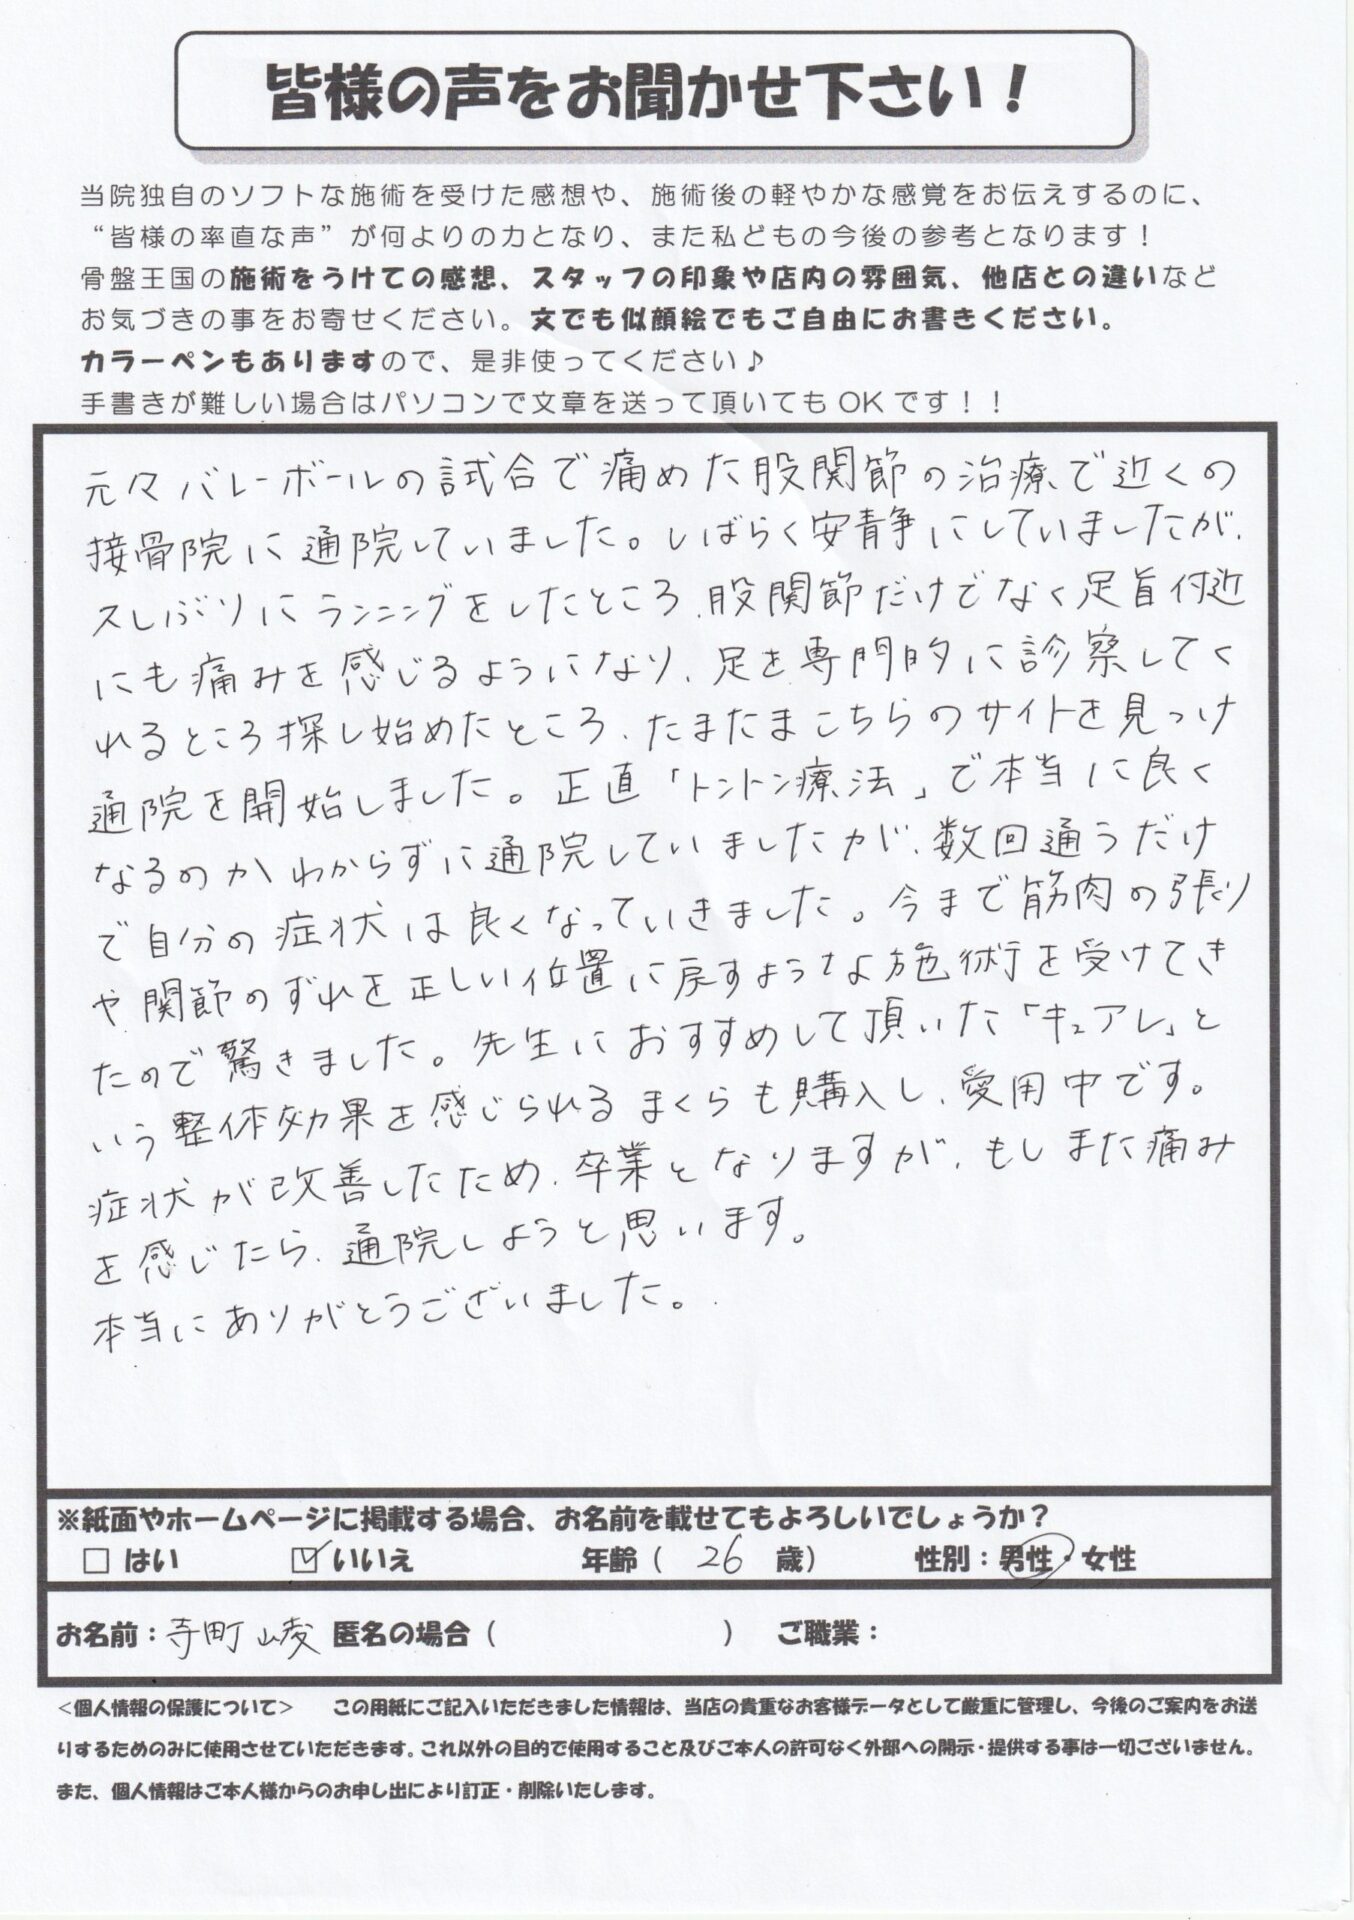 皆様の声をお聞かせ下さい！
当院独自のソフトな施術を受けた感想や、施術後の軽やかな感覚をお伝えするのに、
“皆様の率直な声”が何よりの力となり、また私どもの今後の参考となります！
骨盤王国の施術をうけての感想、スタッフの印象や店内の雰囲気、他店との違いなど
お気づきの事をお寄せください。文でも似顔絵でもご自由にお書きください。
カラーペンもありますので、是非使ってください♪
手書きが難しい場合はパソコンで文章を送って頂いてもOKです！！
元々バレーボールの試合で痛めた股関節の治療で近くの
接骨院に通院していました。しばらく安静にしていましたが、
久しぶりにランニングをしたところ、股関節だけでなく足首付近
にも痛みを感じるようになり、足を専門的に診察してく
れるところ探し始めたところ、たまたまこちらのサイトを見つけ
通院を開始しました。正直「トントン療法」で本当に良く
なるのかわからずに通院していましたが、数回通うだけ
で自分の症状は良くなっていきました。今まで筋肉の張り
や関節のずれを正しい位置に戻すような施術を受けてき
たので驚きました。先生におすすめして頂いた「キュアレ」と
いう整体効果を感じられるまくらも購入し、愛用中です。
症状が改善したため、卒業となりますが、もしまた痛み
を感じたら、通院しようと思います。
本当にありがとうございました。
※紙面やホームページに掲載する場合、お名前を載せてもよろしいでしょうか？
□ はい ☑ いいえ 年齢（ 26 歳） 性別：男性・女性
お名前：寺町 崚 匿名の場合（ ） ご職業：
＜個人情報の保護について＞ この用紙にご記入いただきました情報は、当店の貴重なお客様データとして厳重に管理し、今後のご案内をお送
りするためのみに使用させていただきます。これ以外の目的で使用すること及びご本人の許可なく外部への開示・提供する事は一切ございません。
また、個人情報はご本人様からのお申し出により訂正・削除いたします。